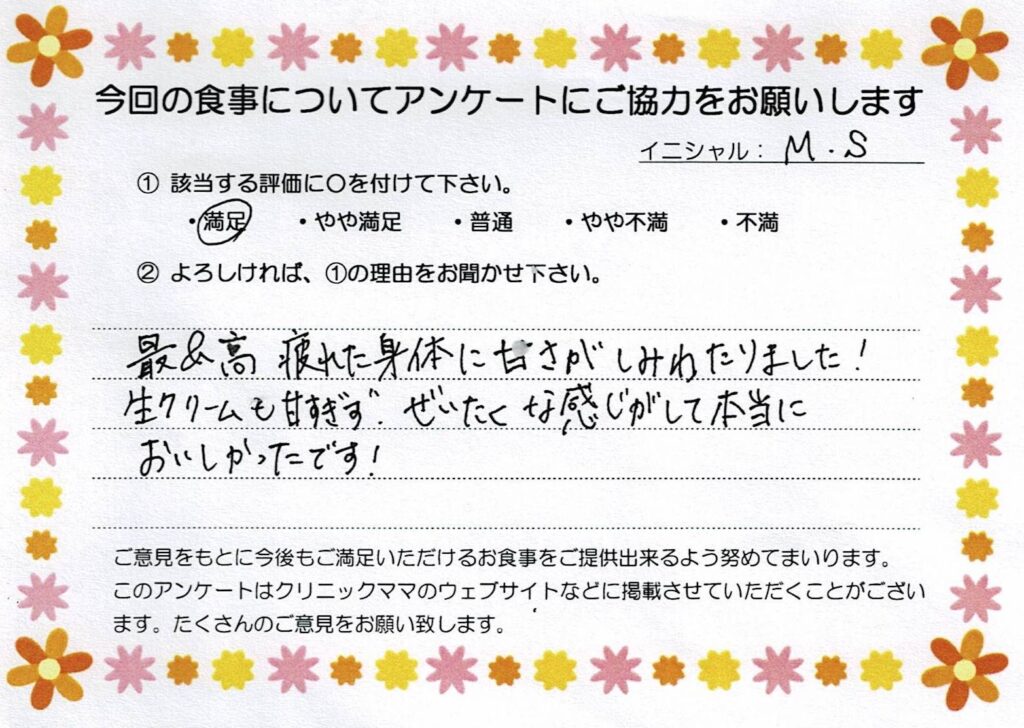 今回の食事についてアンケートにご協力をお願いします
イニシャル： M.S
① 該当する評価に〇を付けて下さい。
・満足 ・やや満足 ・普通 ・やや不満 ・不満
② よろしければ、①の理由をお聞かせ下さい。
最&高 疲れた身体に甘さがしみわたりました！
生クリームも甘すぎず、ぜいたくな感じがして本当に
おいしかったです！
ご意見をもとに今後もご満足いただけるお食事をご提供出来るよう努めてまいります。
このアンケートはクリニックママのウェブサイトなどに掲載させていただくことがござい
ます。たくさんのご意見をお願い致します。